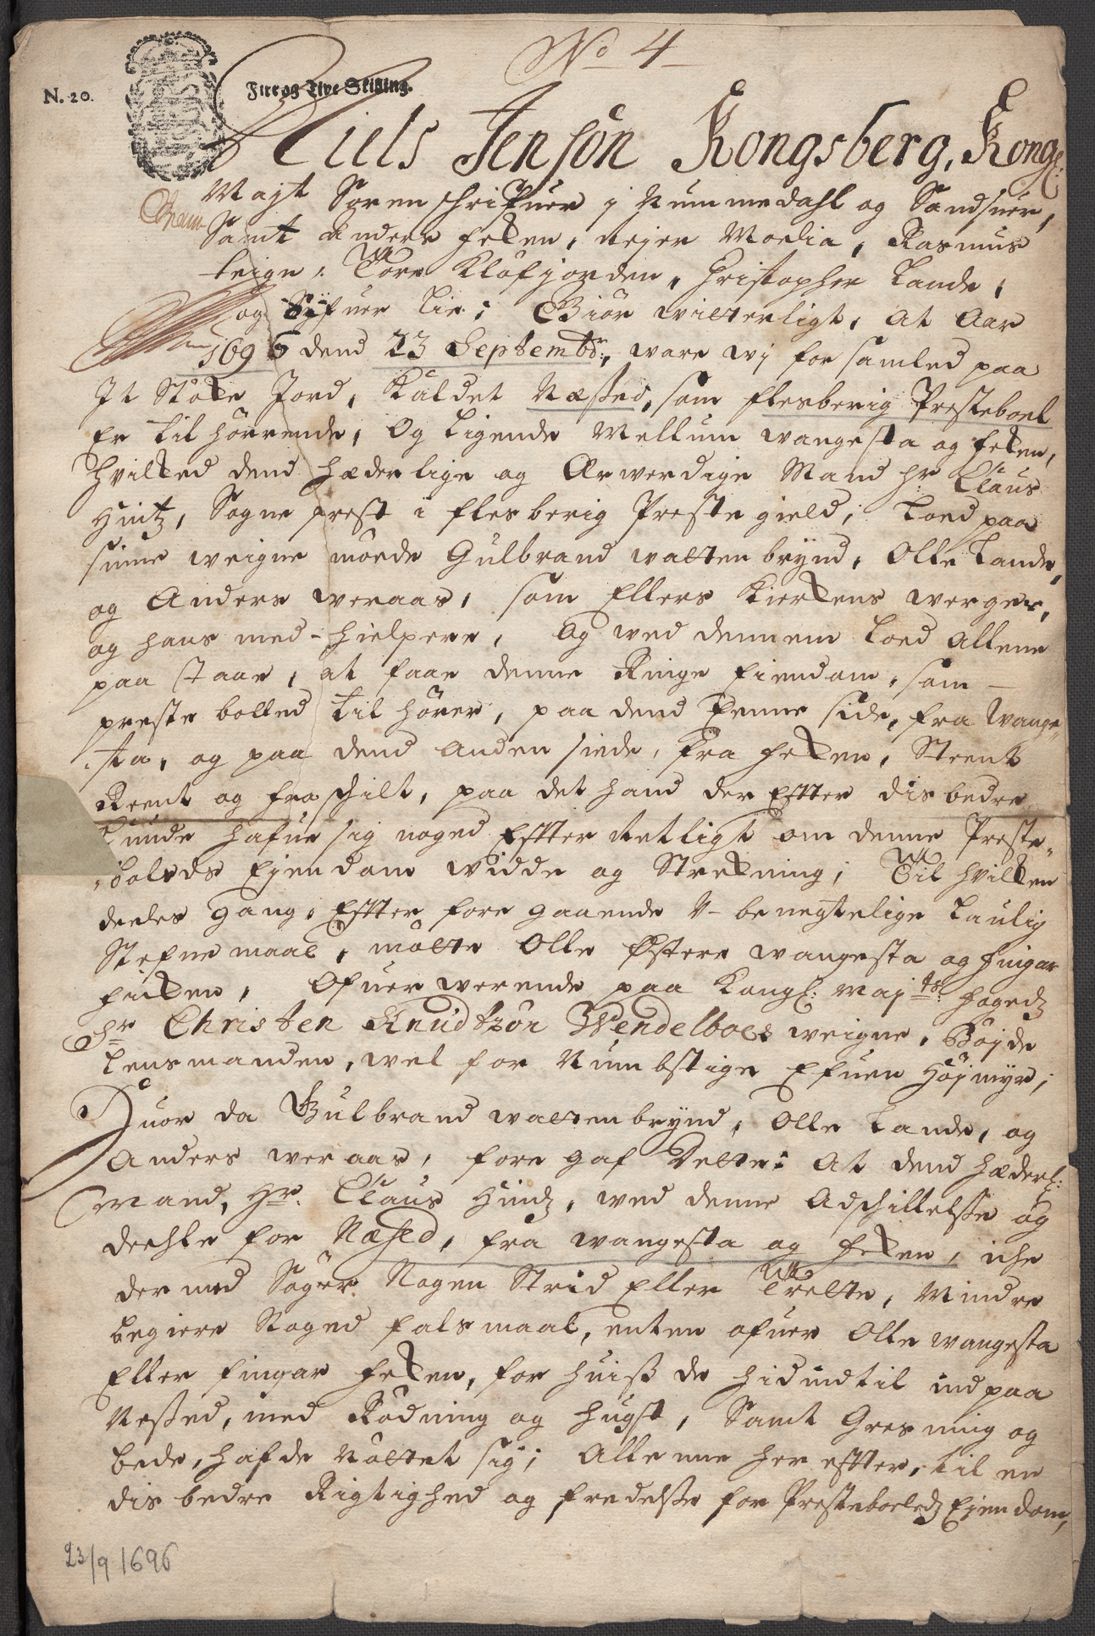 No 4
N. 20.
Fire og Tive Skilling.
Niels Jensøn Kongsberg, Kongl:
Mayt Sorenschrifuer i Nummedahl og Sandsuer,
Samt Anders Fekken, Rejer Moelia, Rasmus
Teign, Tore Klofjorden, Christopher Lande,
og Syfuer Lie; Giør witterligt, At Aar
1696 dend 23 Septembr:, ware wj forsamled paa
It Støke Jord, kaldet Næsted, som flesberig Presteboel
Er tilhørrende, Og Ligende Mellum wangesta og Fekken,
Hvilked dend Hæderlige og Ærwerdige Mand Hr: Claus
Hintz, Sogneprest i flesberig Prestegield, Loed paa
sinne weigne møede Gulbrand wattenbrynd, Olle Lande,
og Anders weraas, som Ellers Kierkens werger,
og hans med-hielpere, Og wed dennem Loed Allene
paa staae, at faae denne Ringe Eiendom, som
preste bolled tilhører, paa dend Eenne side, fra Wange,,
sta, og paa dend Anden siede, fra Fekken, Steent
Reent og fra skilt, paa det hand der Efter dis bedre
kunde hafue sig noged Efterrettligt om denne Preste,,
bolds Ejendom widde og Strekning; Til hvilken
deeles gang, Efter foregaaende V-benegtelige Laulig
Stefnemaal, møtte Olle Østere wangesta og Fingar
Fekken, Ofuerwerende paa Kongl: Maj:ts fogedz
Hr Christen Knudtzøn Wendelboes weigne, Bøjde
Lensmanden, wel for Numbstige Efuen Højmyr;
Huor da Gulbrand wattenbrynd, Olle Lande, og
Anders weraas, foregaf Rette: At dend hæderl:
Mand, Hr. Claus Hindz, wed denne Adskillelße og
deehle for Næsted, fra wangesta og Fekken, iche
der med Søger Nogen Strid Eller Trette, Mindre
begiere Noged falsmaal, enten ofuer Olle wangesta
Eller Fingar Fekken, for huiß de hidindtil ind paa
Nested, med Rødning og Hugst, Samt Gresning og
bede, hafde Nøttet sig; Allenne her efter, til en
dis bedre Rigtighed og fredelße for Presteboeledz Ejendom,
23/9 1696